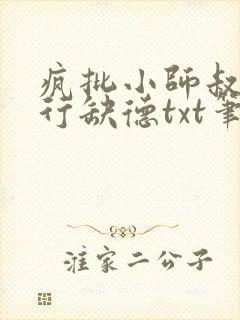 疯批小师叔
行缺德txt笔
淮家二公子